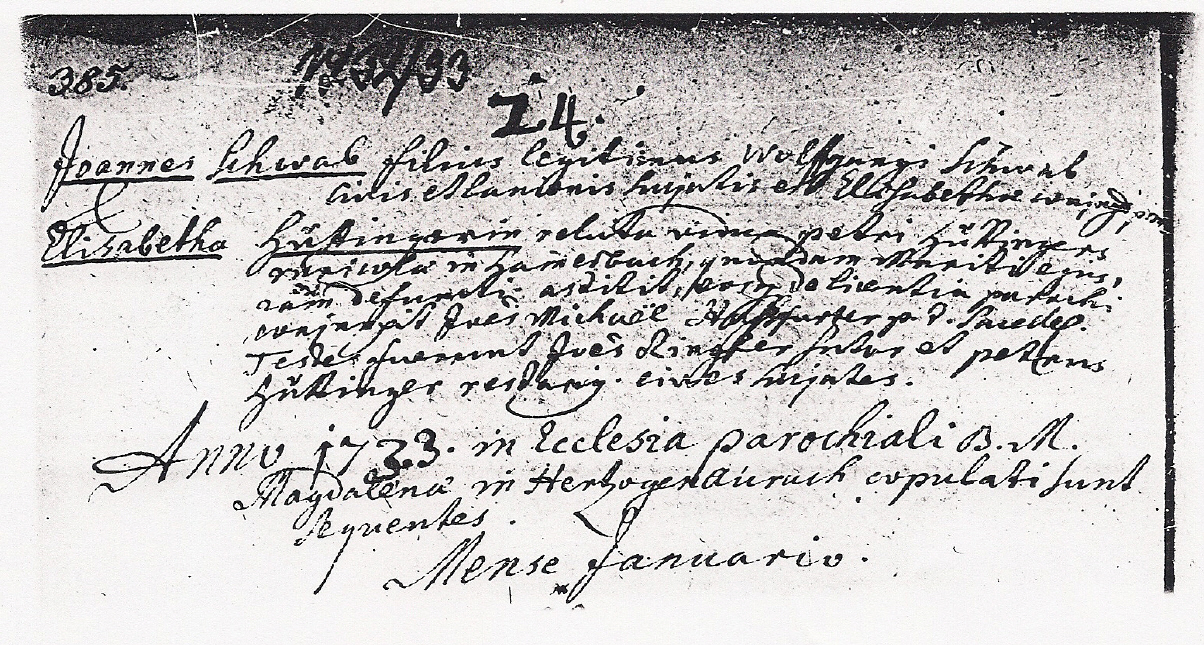 385.
1732/33
24.
Joannes Schwab filius legitimus Wolffgangi Schwab
civis et lanionis hujatis et Elisabethae conjugum
Elisabetha Hüttingerin relicta vidua petri Hüttingers
in quondam Mariti ejus,
jam defuncti. astitit, de licentia parochi
conjunxit Joes Michaël p. t.
Testes fuerunt Joes Ringler sutor et petrus
Hüttinger cives hujates.
Anno 1733. in Ecclesia parochiali B. M.
Magdalena in Herzogenaurach copulati sunt
sequentes.
Mense Januario.